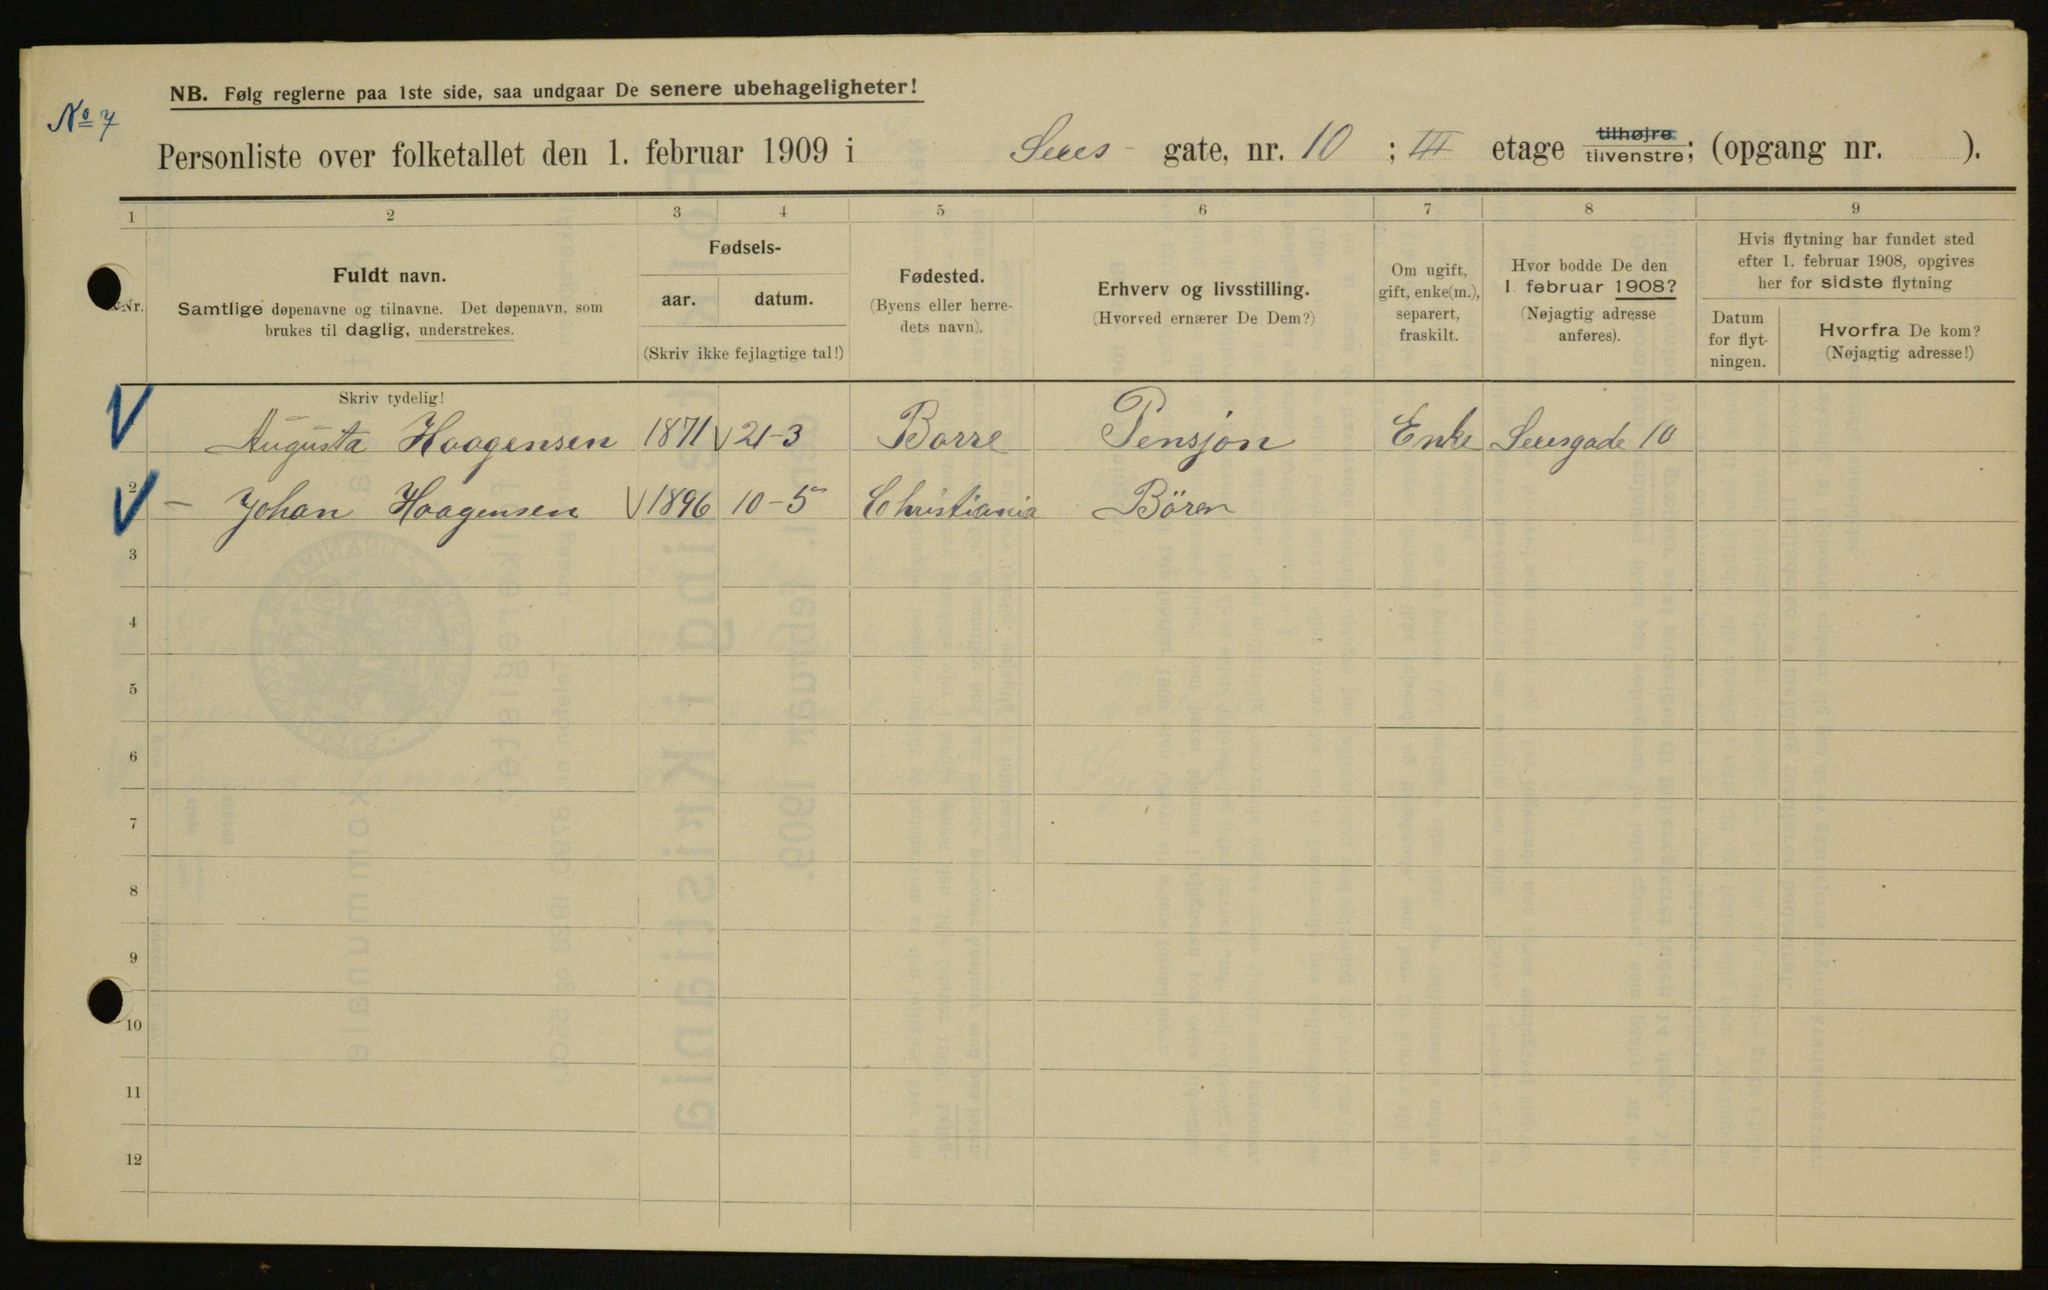 NB. Følg reglerne paa 1ste side, saa undgaar De senere ubehageligheter!
No 7
Personliste over folketallet den 1. februar 1909 i Seues- gate, nr. 10 ; III etage tilhøjre tilvenstre; (opgang nr. ).
1 2 3 4 5 6 7 8 9
Nr.
Fuldt navn.
Samtlige døpenavne og tilnavne. Det døpenavn, som
brukes til daglig, understrekes.
Fødsels-
aar. datum.
(Skriv ikke fejlagtige tal!)
Fødested.
(Byens eller herre-
dets navn).
Erhverv og livsstilling.
(Hvorved ernærer De Dem?)
Om ugift,
gift, enke(m.),
separert,
fraskilt.
Hvor bodde De den
1. februar 1908?
(Nøjagtig adresse
anføres).
Hvis flytning har fundet sted
efter 1. februar 1908, opgives
her for sidste flytning
Datum
for flyt-
ningen.
Hvorfra De kom?
(Nøjagtig adresse!)
Skriv tydelig!
Augusta Haagensen 1871 21-3 Borre Pensjon Enke Seuesgade 10
2 – Johan Haagensen 1896 10-5 Christiania Bören
3
4
5
6
7
8
9
10
11
12